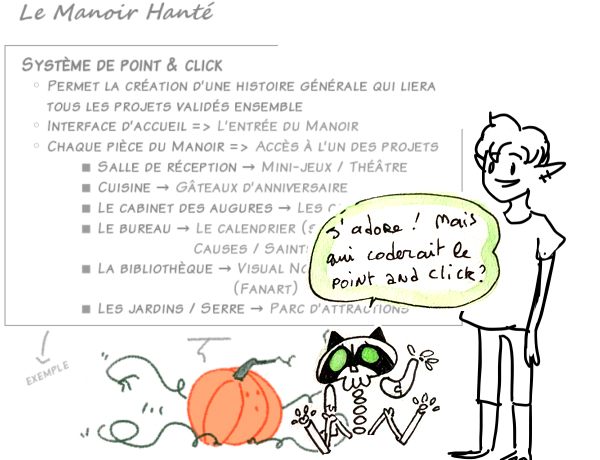 Le Manoir Hanté
Système de point & click
Permet la création d'une histoire générale qui liera
tous les projets validés ensemble
Interface d'accueil => L'entrée du Manoir
Chaque pièce du Manoir => Accès à l'un des projets
Salle de réception → Mini-jeux / Théâtre
Cuisine → Gâteaux d'anniversaire
Le cabinet des augures → Les
Le bureau → Le calendrier
Causes / Saint
La bibliothèque → Visual
(Fanart)
Les jardins / Serre → Parc d'attractions
J'adore ! Mais
qui coderait le
point and click ?
EXEMPLE